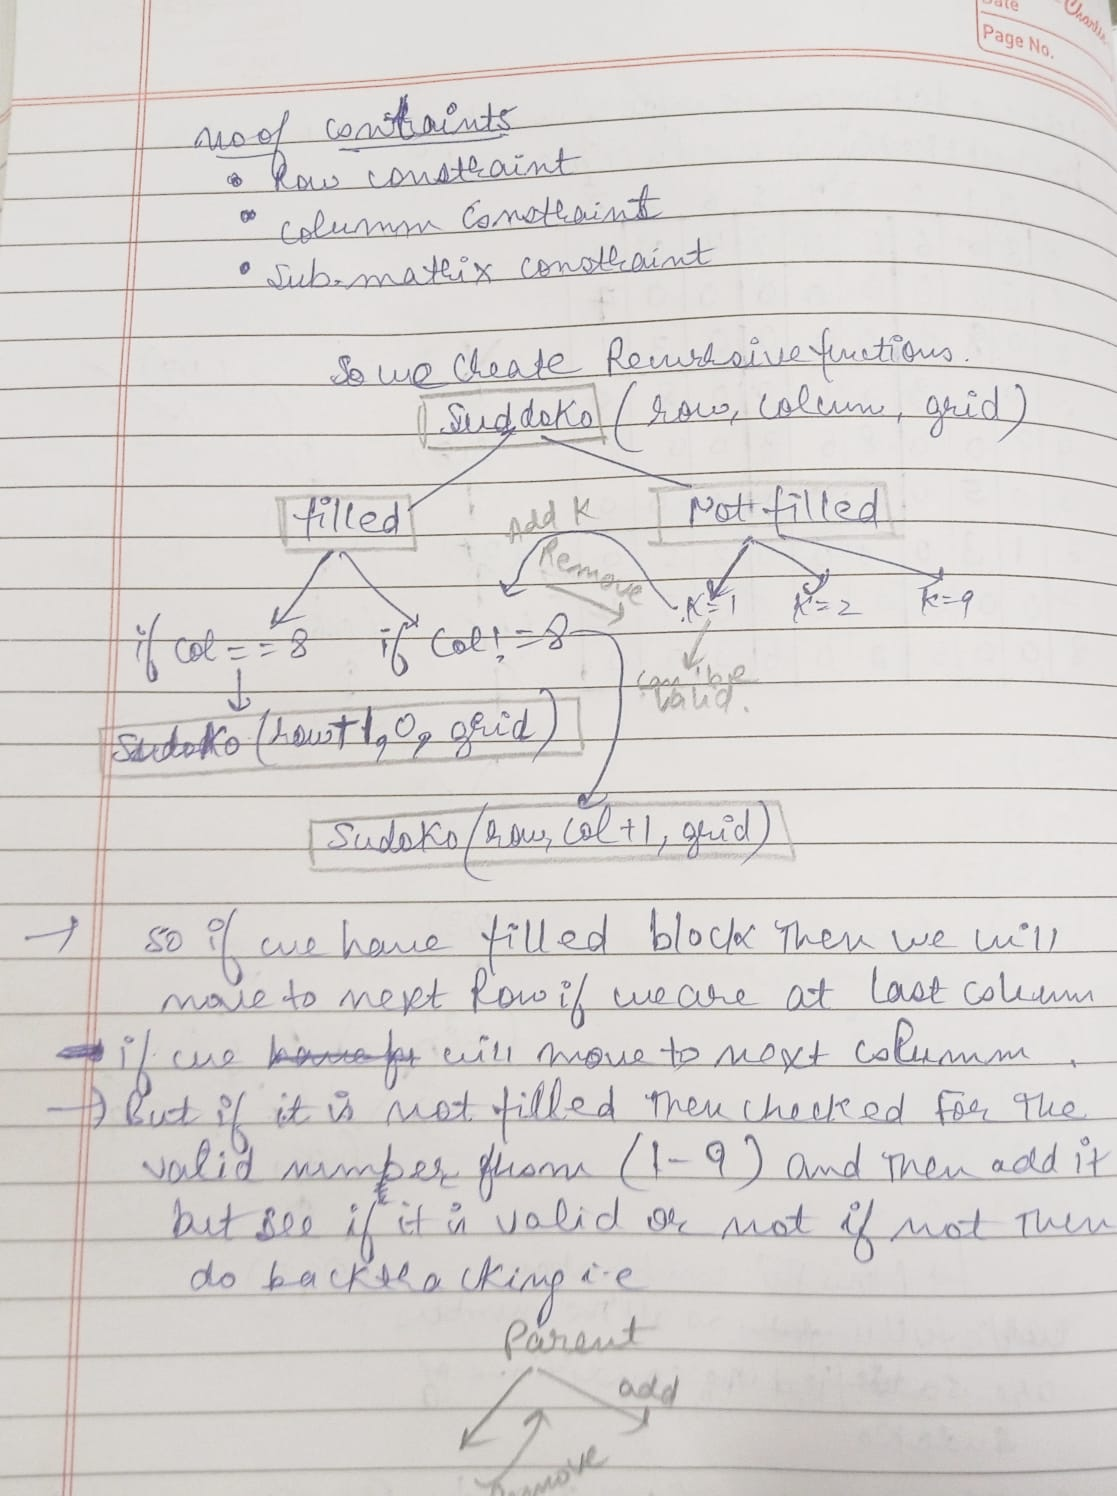 Date
Charlie
Page No.
no of contraints
• Row constraint
• column constraint
• Sub-matrix constraint
So we Create Recursive functions.
Suddoko (row, colcum, grid)
filled
Not filled
Add K
Remove
K=1 K=2 K=9
if col == 8 if Col != 8
can be valid.
Sudoko (row+1, 0, grid)
Sudoko (row, col+1, grid)
→ so if we have filled block Then we will
move to next Row if we are at last column
if we will move to next column.
→ But if it is not filled Then checked For The
valid number from (1-9) and Then add it
but see if it is valid or not if not Then
do backtracking i.e
Parent
add
Remove